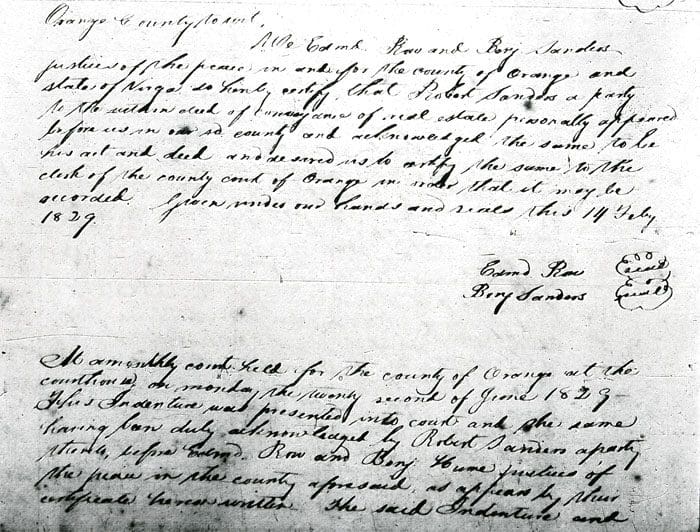 Orange County to wit,
We Edmd. Row and Benj Sanders
justices of the peace in and for the county of Orange and
state of Virga. do hereby certify, that Robert Sanders a party
to the within deed of conveyance of real estate personally appeared
before us in our sd county and acknowledged the same to be
his act and deed and desired us to certify the same to the
clerk of the county court of Orange in order that it may be
recorded Given under our hands and seals this 14 Feby
1829.
Edmd Row Seal
Benj Sanders Seal
At a monthly court held for the county of Orange at the
courthouse on monday the twenty second of June 1829
This Indenture was presented into court and the same
having been duly acknowledged by Robert Sanders a party
thereto, before Edmd. Row and Benj Hume justices of
the peace in the county aforesaid, as appears by their
certificate hereon written The said Indenture and